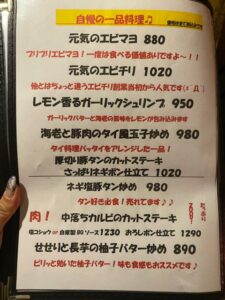 自慢の一品料理♫
元気のエビマヨ 880
プリプリエビマヨ!一度は食べる価値ありですよ~!
元気のエビチリ 1020
他とはちょっと違うエビチリ創業当初から人気です(≧Д≦)
レモン香るガーリックシュリンプ 950
ガーリックバターと海老の風味をレモンが包み込みます
海老と豚肉のタイ風玉子炒め 980
タイ料理パッタイをアレンジした一品!
厚切り豚タンのカットステーキ
さっぱりネギポン仕立て 1020
ネギ塩豚タン炒め 980
タン好き必食!売れてます♪♪
肉! 中落ちカルビのカットステーキ
塩コショウ or 自家製BBソース1230 おろしポン仕立て 1290
たっぷり
200g!
せせりと長芋の柚子バター炒め 890
ピリッと効いた柚子バター!味も食感もおススメです♪